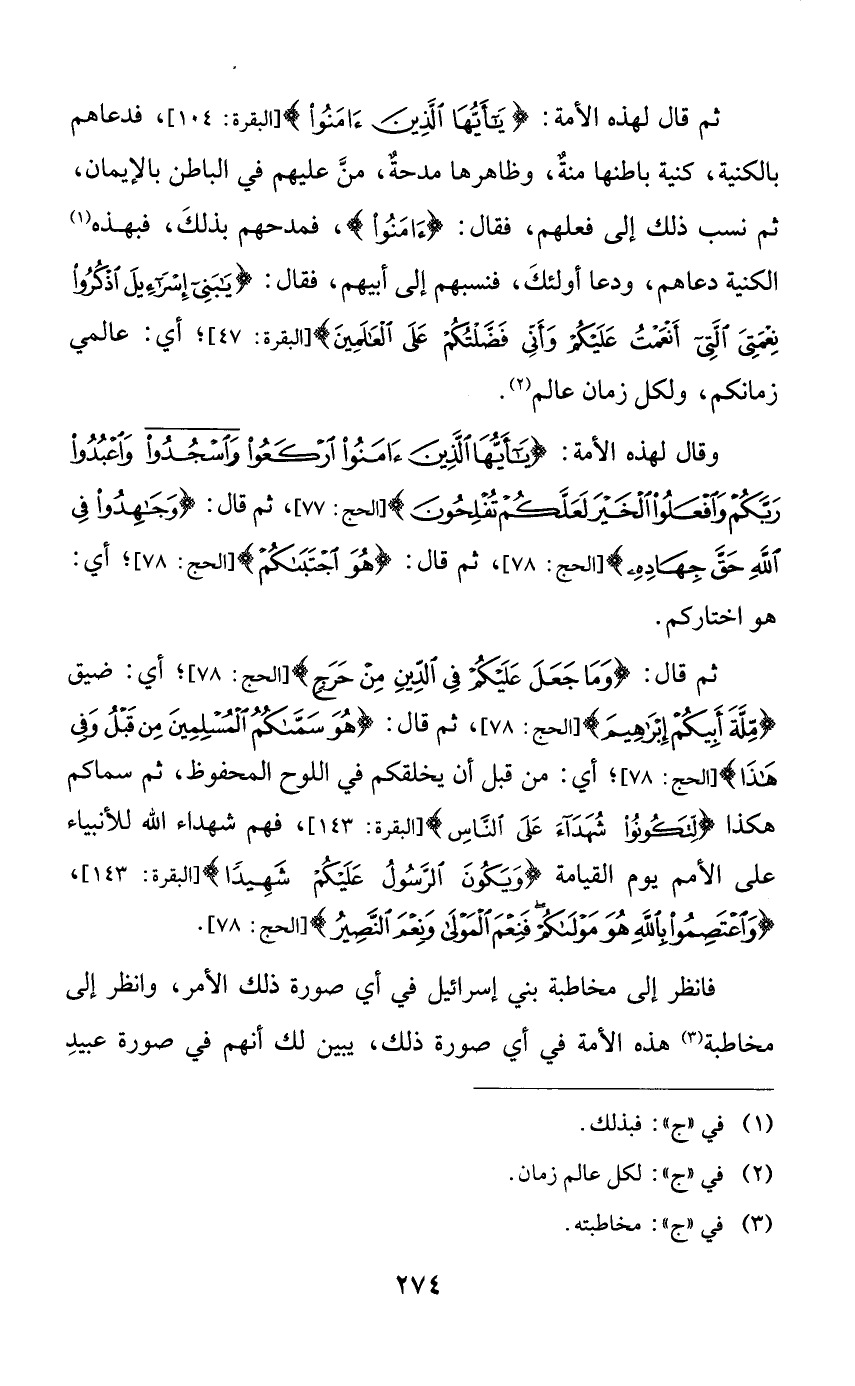 ثم قال لهذه الأمة: ﴿يَٰٓأَيُّهَا ٱلَّذِينَ ءَامَنُوا۟﴾[البقرة: ١٠٤]، فدعاهم
بالكنية، كنية باطنها منةٌ، وظاهرها مدحةٌ، منَّ عليهم في الباطن بالإيمان،
ثم نسب ذلك إلى فعلهم، فقال: ﴿ءَامَنُوا۟﴾، فمدحهم بذلكَ، فبهذه(١)
الكنية دعاهم، ودعا أولئكَ، فنسبهم إلى أبيهم، فقال: ﴿يَٰبَنِىٓ إِسْرَٰٓءِيلَ ٱذْكُرُوا۟
نِعْمَتِىَ ٱلَّتِىٓ أَنْعَمْتُ عَلَيْكُمْ وَأَنِّى فَضَّلْتُكُمْ عَلَى ٱلْعَٰلَمِينَ﴾[البقرة: ٤٧]؛ أي: عالمي
زمانكم، ولكل زمان عالم(٢).
وقال لهذه الأمة: ﴿يَٰٓأَيُّهَا ٱلَّذِينَ ءَامَنُوا۟ ٱرْكَعُوا۟ وَٱسْجُدُوا۟ وَٱعْبُدُوا۟
رَبَّكُمْ وَٱفْعَلُوا۟ ٱلْخَيْرَ لَعَلَّكُمْ تُفْلِحُونَ﴾[الحج: ٧٧]، ثم قال: ﴿وَجَٰهِدُوا۟ فِى
ٱللَّهِ حَقَّ جِهَادِهِۦ﴾[الحج: ٧٨]، ثم قال: ﴿هُوَ ٱجْتَبَىٰكُمْ﴾[الحج: ٧٨]؛ أي:
هو اختاركم.
ثم قال: ﴿وَمَا جَعَلَ عَلَيْكُمْ فِى ٱلدِّينِ مِنْ حَرَجٍ﴾[الحج: ٧٨]؛ أي: ضيق
﴿مِّلَّةَ أَبِيكُمْ إِبْرَٰهِيمَ﴾[الحج: ٧٨]، ثم قال: ﴿هُوَ سَمَّىٰكُمُ ٱلْمُسْلِمِينَ مِن قَبْلُ وَفِى
هَٰذَا﴾[الحج: ٧٨]؛ أي: من قبل أن يخلقكم في اللوح المحفوظ، ثم سماكم
هكذا ﴿لِّتَكُونُوا۟ شُهَدَآءَ عَلَى ٱلنَّاسِ﴾[البقرة: ١٤٣]، فهم شهداء الله للأنبياء
على الأمم يوم القيامة ﴿وَيَكُونَ ٱلرَّسُولُ عَلَيْكُمْ شَهِيدًا﴾[البقرة: ١٤٣]،
﴿وَٱعْتَصِمُوا۟ بِٱللَّهِ هُوَ مَوْلَىٰكُمْ ۖ فَنِعْمَ ٱلْمَوْلَىٰ وَنِعْمَ ٱلنَّصِيرُ﴾[الحج: ٧٨].
فانظر إلى مخاطبة بني إسرائيل في أي صورة ذلك الأمر، وانظر إلى
مخاطبة(٣) هذه الأمة في أي صورة ذلك، يبين لك أنهم في صورة عبيدِ
(١) في «ج»: فبذلك.
(٢) في «ج»: لكل عالم زمان.
(٣) في «ج»: مخاطبته.
٢٧٤